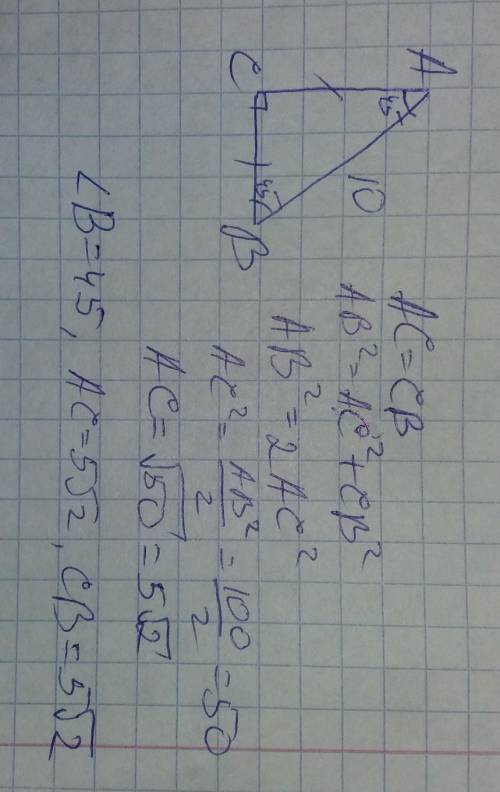 A
45
C
45
B
10
AC=CB
AB²=AC²+CB²
AB²=2AC²
AC²=AB²/2=100/2=50
AC=√50=5√2
∠B=45, AC=5√2, CB=5√2